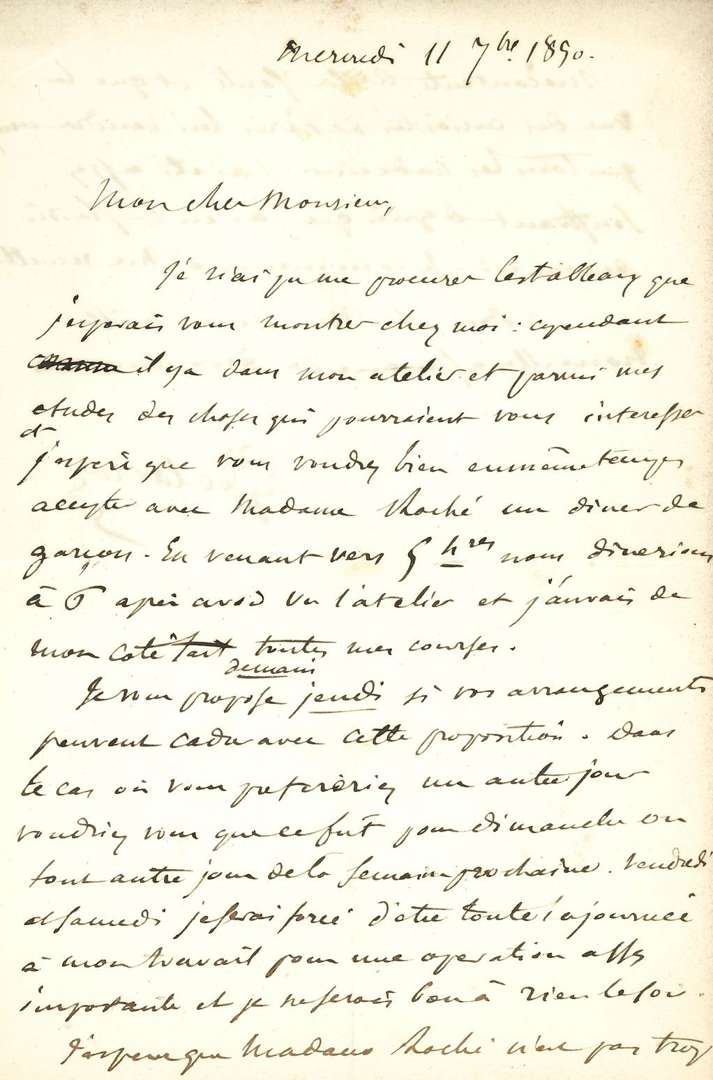 Mercredi 11 7bre 1850.
Mon cher Monsieur,
Je n'ai pu me procurer les tableaux que
j'esperais vous montrer chez moi : cependant
il y a dans mon atelier et parmi mes
etudes des choses qui pourraient vous interesser
et
j'espère que vous voudrez bien en même temps
accepter avec Madame Roché un diner de
garçon. En venant vers 5 hres nous dinerions
à 6 après avoir vu l'atelier et j'aurais de
mon coté fait toutes mes courses.
demain
Je vous propose jeudi si vos arrangements
peuvent cadrer avec cette proposition. Dans
le cas où vous prefereriez un autre jour
voudriez vous que ce fut pour dimanche ou
tout autre jour de la semaine prochaine. Vendredi
et samedi je serai forcé d'etre toute la journée
à mon travail pour une operation assez
importante et je ne serais bon à rien le soir.
J'espere que Madame Roché n'est pas trop